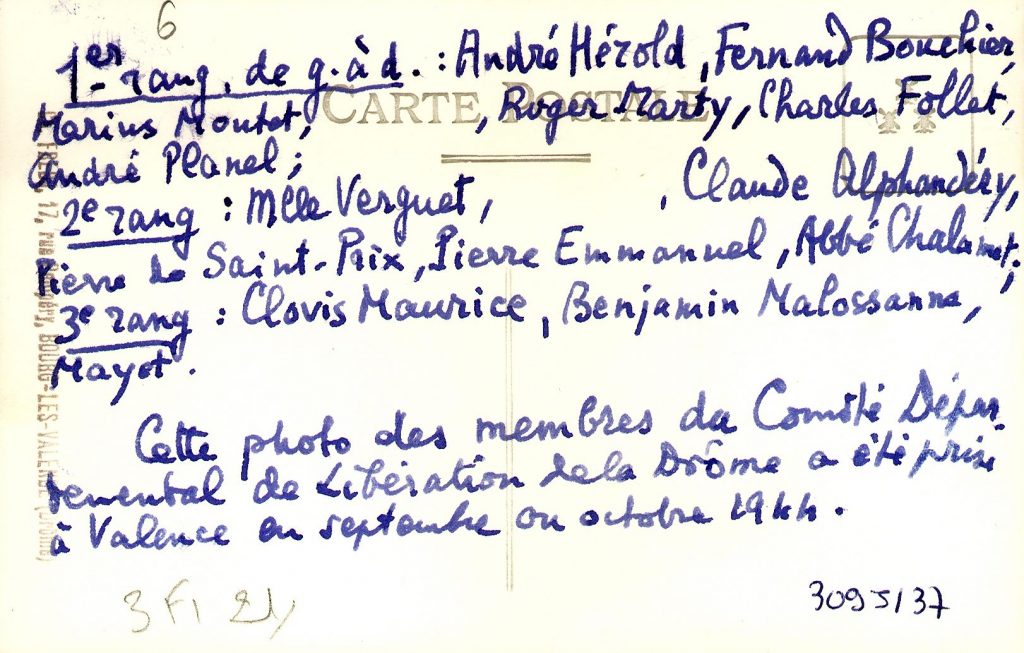 6
1er rang, de g. à d. : André Hérold, Fernand Bouchier,
CARTE POSTALE
Marius Moutet, , Roger Marty, Charles Follet,
André Planel ;
2e rang : Mlle Verguet, , Claude Alphandéry,
Pierre de Saint-Prix, Pierre Emmanuel, Abbé Chalamet ;
3e rang : Clovis Maurice, Benjamin Malossanne,
Mayet.
Cette photo des membres du Comité Dépar-
temental de Libération de la Drôme a été prise
à Valence en septembre ou octobre 1944.
17, rue BOURG-LES-VALENCE (Drôme)
3 FI 21
3095/37